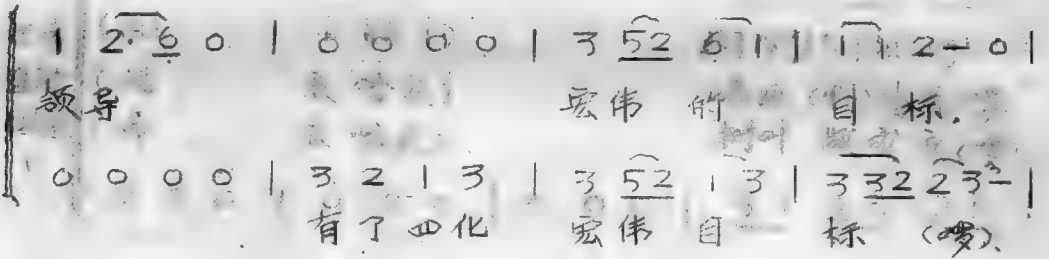 1 2· 6 0 | 0 0 0 0 | 3 52 6 1 | 1 1 2 - 0 |
领导. 宏伟 的 目 标.
0 0 0 0 | 3 2 1 3 | 3 52 1 3 | 3 32 2 3 - |
有了四化 宏伟 目 标 (啰)、